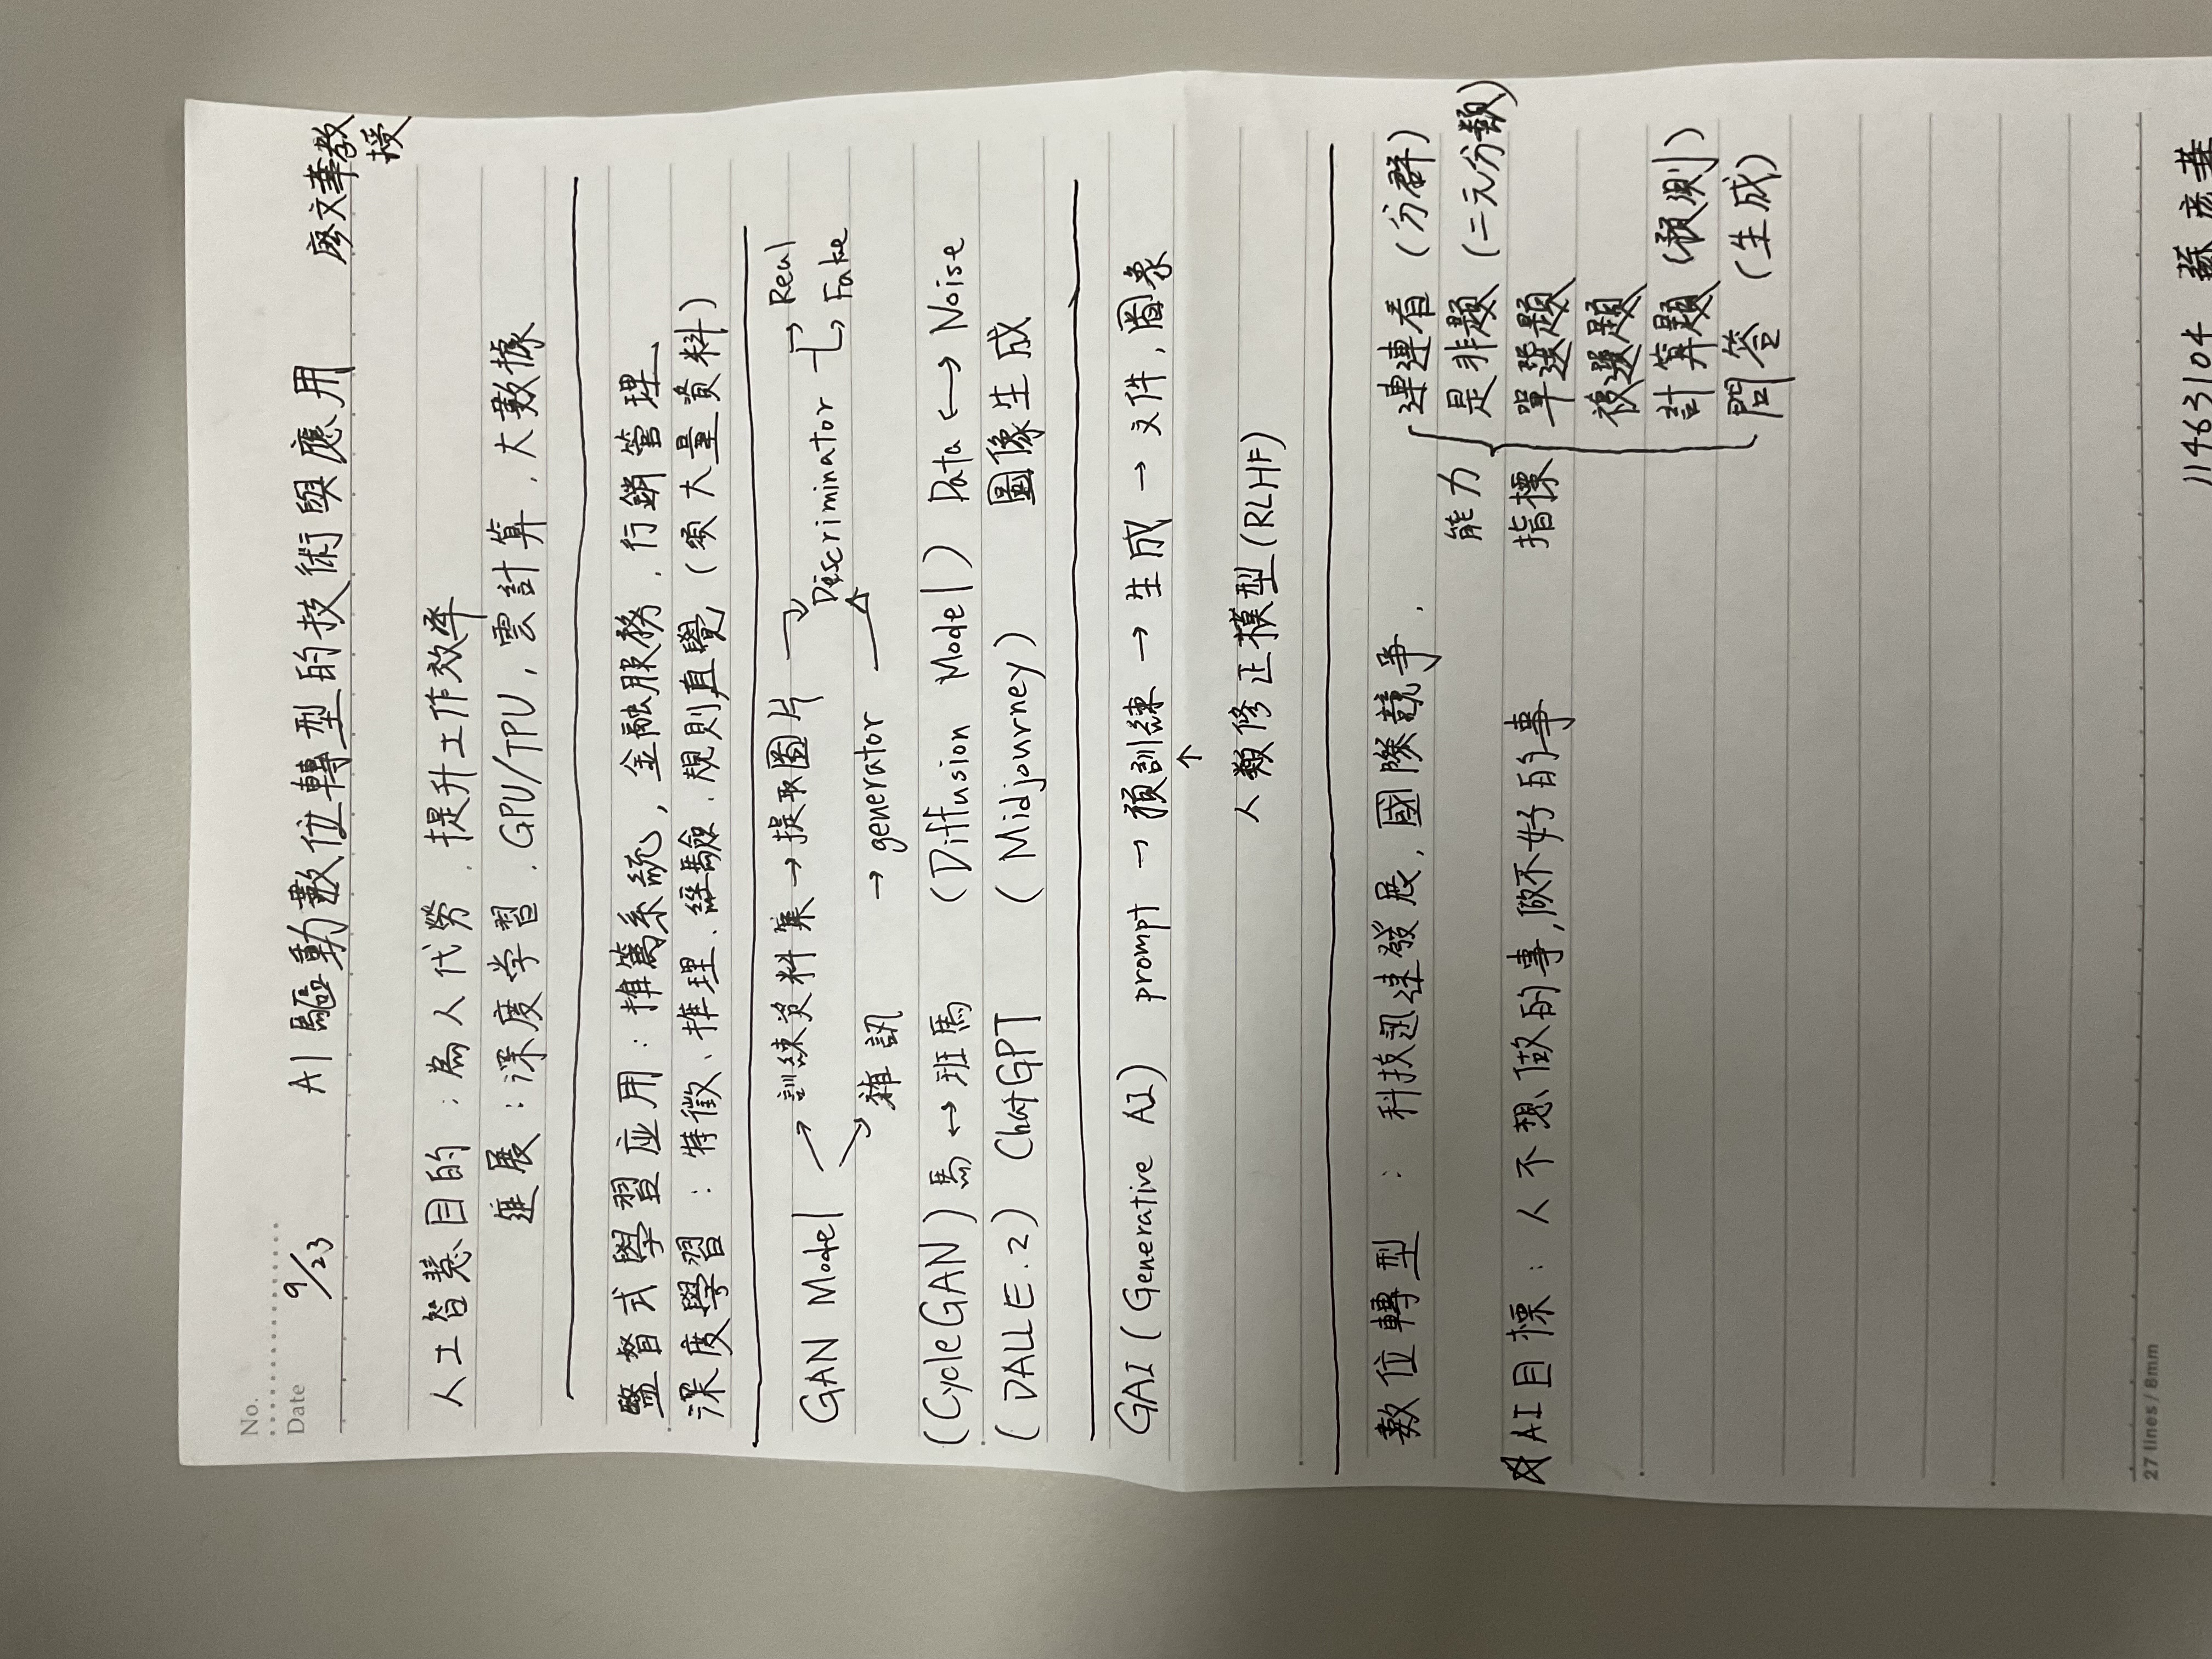 No.
Date 9/23 AI驅動數位轉型的技術與應用 廖文華教授
人工智慧目的：為人代勞，提升工作效率
進展：深度学習，GPU/TPU，雲計算，大數據
監督式學習应用：推篤系統，金融服務，行銷管理、
深度學習：特徵、推理、經驗、規則直覺（須大量資料）
GAN Model → 訓練資料集 → 提取圖片 → Discriminator → Real
→ Fake
→ 雜訊 → generator →
(CycleGAN) 馬 ↔ 班馬 (Diffusion Model) Data ↔ Noise
(DALLE.2) ChatGPT (Midjourney) 圖像生成
GAI (Generative AI) prompt → 預訓練 → 生成 → 文件，圖象
↑
人類修正模型(RLHF)
數位轉型：科技迅速發展，國際競爭，
能力指標 { 連連看（分群）
是非題（二元分類）
單選題
複選題
計算題（預測）
問答（生成）
☆AI目標：人不想做的事，做不好的事
27 lines / 8mm
11463104 蘇